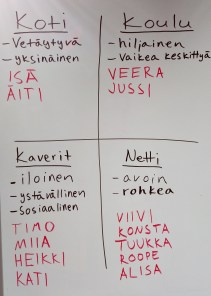 Koti
- Vetäytyvä
- yksinäinen
ISÄ
ÄITI
Koulu
- hiljainen
- Vaikea keskittyä
VEERA
JUSSI
Kaverit
- iloinen
- ystävällinen
- sosiaalinen
TIMO
MIIA
HEIKKI
KATI
Netti
- avoin
- rohkea
VIIVI
KONSTA
TUUKKA
ROOPE
ALISA